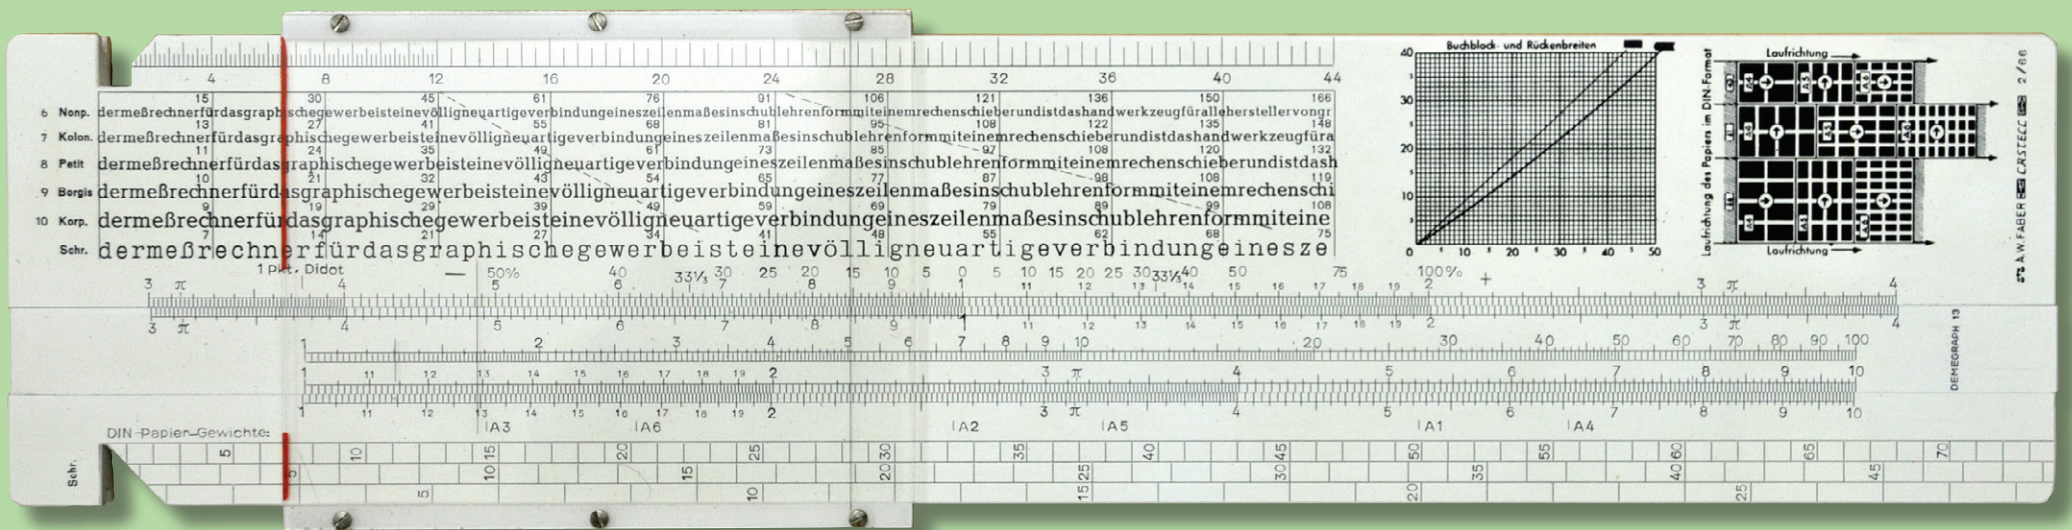 4 8 12 16 20 24 28 32 36 40 44
15 30 45 61 76 91 106 121 136 150 166
6 Nonp. dermeßrechnerfürdasgraphischegewerbeisteinevölligneuartigeverbindungeineszeilenmaßesinschublehrenformmiteinemrechenschieberundistdashandwerkzeugfüralleherstellervongr
13 27 41 55 68 81 95 108 122 135 148
7 Kolon. dermeßrechnerfürdasgraphischegewerbeisteinevölligneuartigeverbindungeineszeilenmaßesinschublehrenformmiteinemrechenschieberundistdashandwerkzeugfüra
11 24 35 49 61 73 85 97 108 120 132
8 Petit dermeßrechnerfürdasgraphischegewerbeisteinevölligneuartigeverbindungeineszeilenmaßesinschublehrenformmiteinemrechenschieberundistdash
10 21 32 43 54 65 77 87 98 108 119
9 Borgis dermeßrechnerfürdasgraphischegewerbeisteinevölligneuartigeverbindungeineszeilenmaßesinschublehrenformmiteinemrechenschi
9 19 29 39 49 59 69 79 89 99 108
10 Korp. dermeßrechnerfürdasgraphischegewerbeisteinevölligneuartigeverbindungeineszeilenmaßesinschublehrenformmiteine
7 14 21 27 34 41 48 55 62 68 75
Schr. dermeßrechnerfürdasgraphischegewerbeisteinevölligneuartigeverbindungeinesze
1 Pkt. Didot — 50% 40 33⅓ 30 25 20 15 10 5 0 5 10 15 20 25 30 33⅓ 40 50 75 100% +
3 π 4 5 6 7 8 9 1 11 12 13 14 15 16 17 18 19 2 3 π 4
3 π 4 5 6 7 8 9 1 11 12 13 14 15 16 17 18 19 2 3 π 4
1 2 3 4 5 6 7 8 9 10 20 30 40 50 60 70 80 90 100
1 11 12 13 14 15 16 17 18 19 2 3 π 4 5 6 7 8 9 10
1 11 12 13 14 15 16 17 18 19 2 3 π 4 5 6 7 8 9 10
DIN-Papier-Gewichte: A3 A6 A2 A5 A1 A4
5 10 15 20 25 30 35 40 45 50 55 60 65 70
Schr. 5 10 15 20 25 30 35 40 45
5 10 15 20 25
Buchblock- und Rückenbreiten
40
30
20
10
0 10 20 30 40 50
Laufrichtung des Papiers im DIN-Format
Laufrichtung
Laufrichtung
A.W. FABER CASTELL 2/66
DEMEGRAPH 13